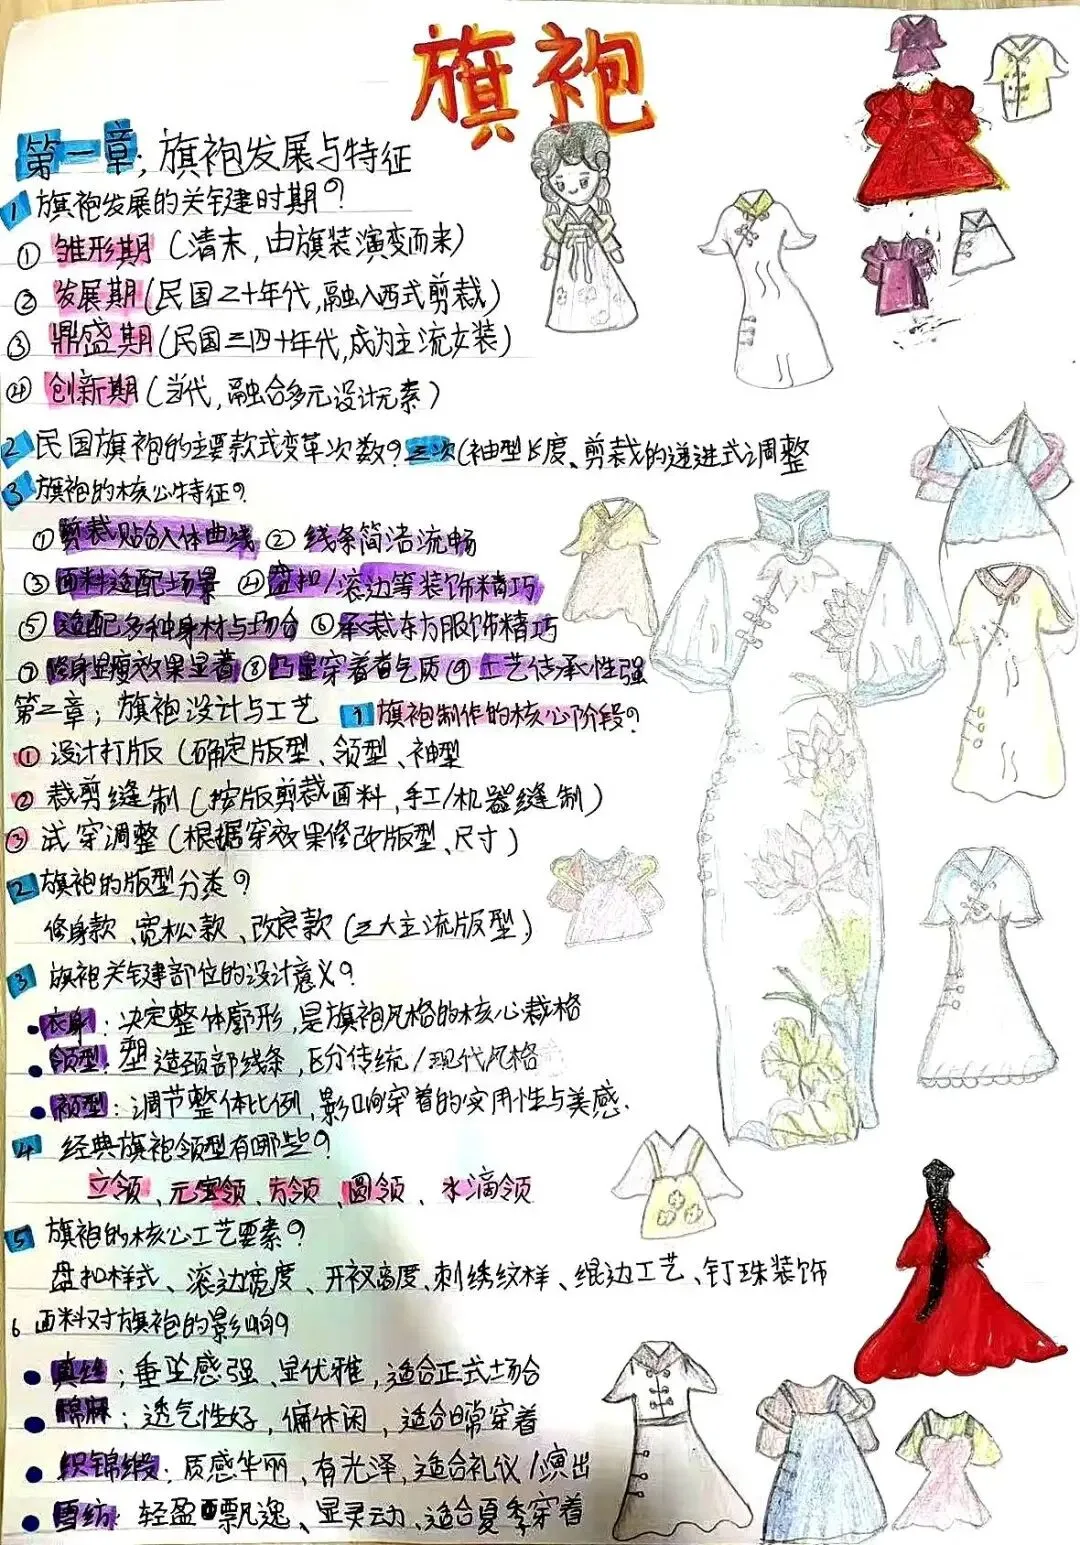 旗袍
第一章；旗袍发展与特征
1 旗袍发展的关键时期？
① 雏形期（清末，由旗装演变而来）
② 发展期（民国二十年代，融入西式剪裁）
③ 鼎盛期（民国三四十年代，成为主流女装）
④ 创新期（当代，融合多元设计元素）
2 民国旗袍的主要款式变革次数？三次（袖型长度、剪裁的递进式调整
3 旗袍的核心特征？
① 剪裁贴合人体曲线 ② 线条简洁流畅
③ 面料适配场景 ④ 盘扣/滚边等装饰精巧
⑤ 适配多种身材与场合 ⑥ 承裁东方服饰精巧
⑦ 修身显瘦效果显著 ⑧ 凸显穿着者气质 ⑨ 工艺传承性强
第二章；旗袍设计与工艺 1 旗袍制作的核心阶段？
① 设计打版（确定版型、领型、袖型
② 裁剪缝制（按版剪裁面料，手工/机器缝制）
③ 试穿调整（根据穿效果修改版型、尺寸）
2 旗袍的版型分类？
修身款、宽松款、改良款（三大主流版型）
3 旗袍关键部位的设计意义？
衣身：决定整体廓形，是旗袍风格的核心裁格
领型：塑造颈部线条，区分传统/现代风格
：调节整体比例，影响穿着的实用性与美感.
4 经典旗袍领型有哪些？
立领、元宝领、方领、圆领、水滴领
5 旗袍的核心工艺要素？
盘扣样式、滚边宽度、开衩高度、刺绣纹样、绲边工艺、钉珠装饰
6 面料对旗袍的影响？
真丝；垂坠感强、显优雅，适合正式场合
棉麻：透气性好，偏休闲，适合日常穿着
织锦缎：质感华丽，有光泽，适合礼仪/演出
雪纺：轻盈飘逸、显灵动、适合夏季穿着